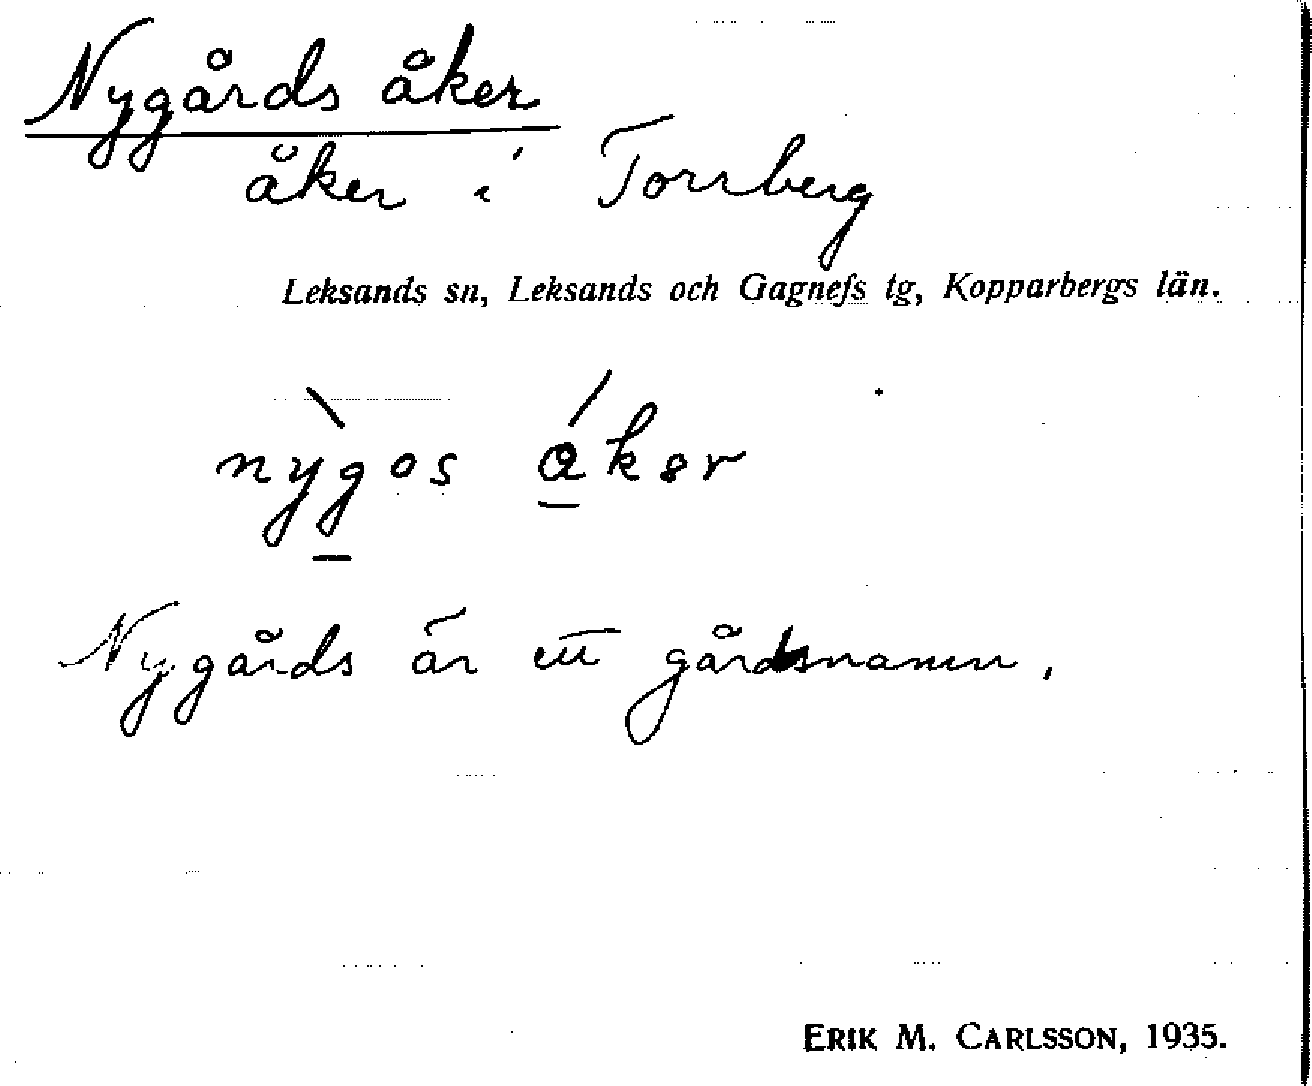 Nygårds åker
åker i Torrberg
Leksands sn, Leksands och Gagnefs tg, Kopparbergs län.
nỳg̲os á̲kər
Nygårds är ett gårdsnamn.
ERIK M. CARLSSON, 1935.